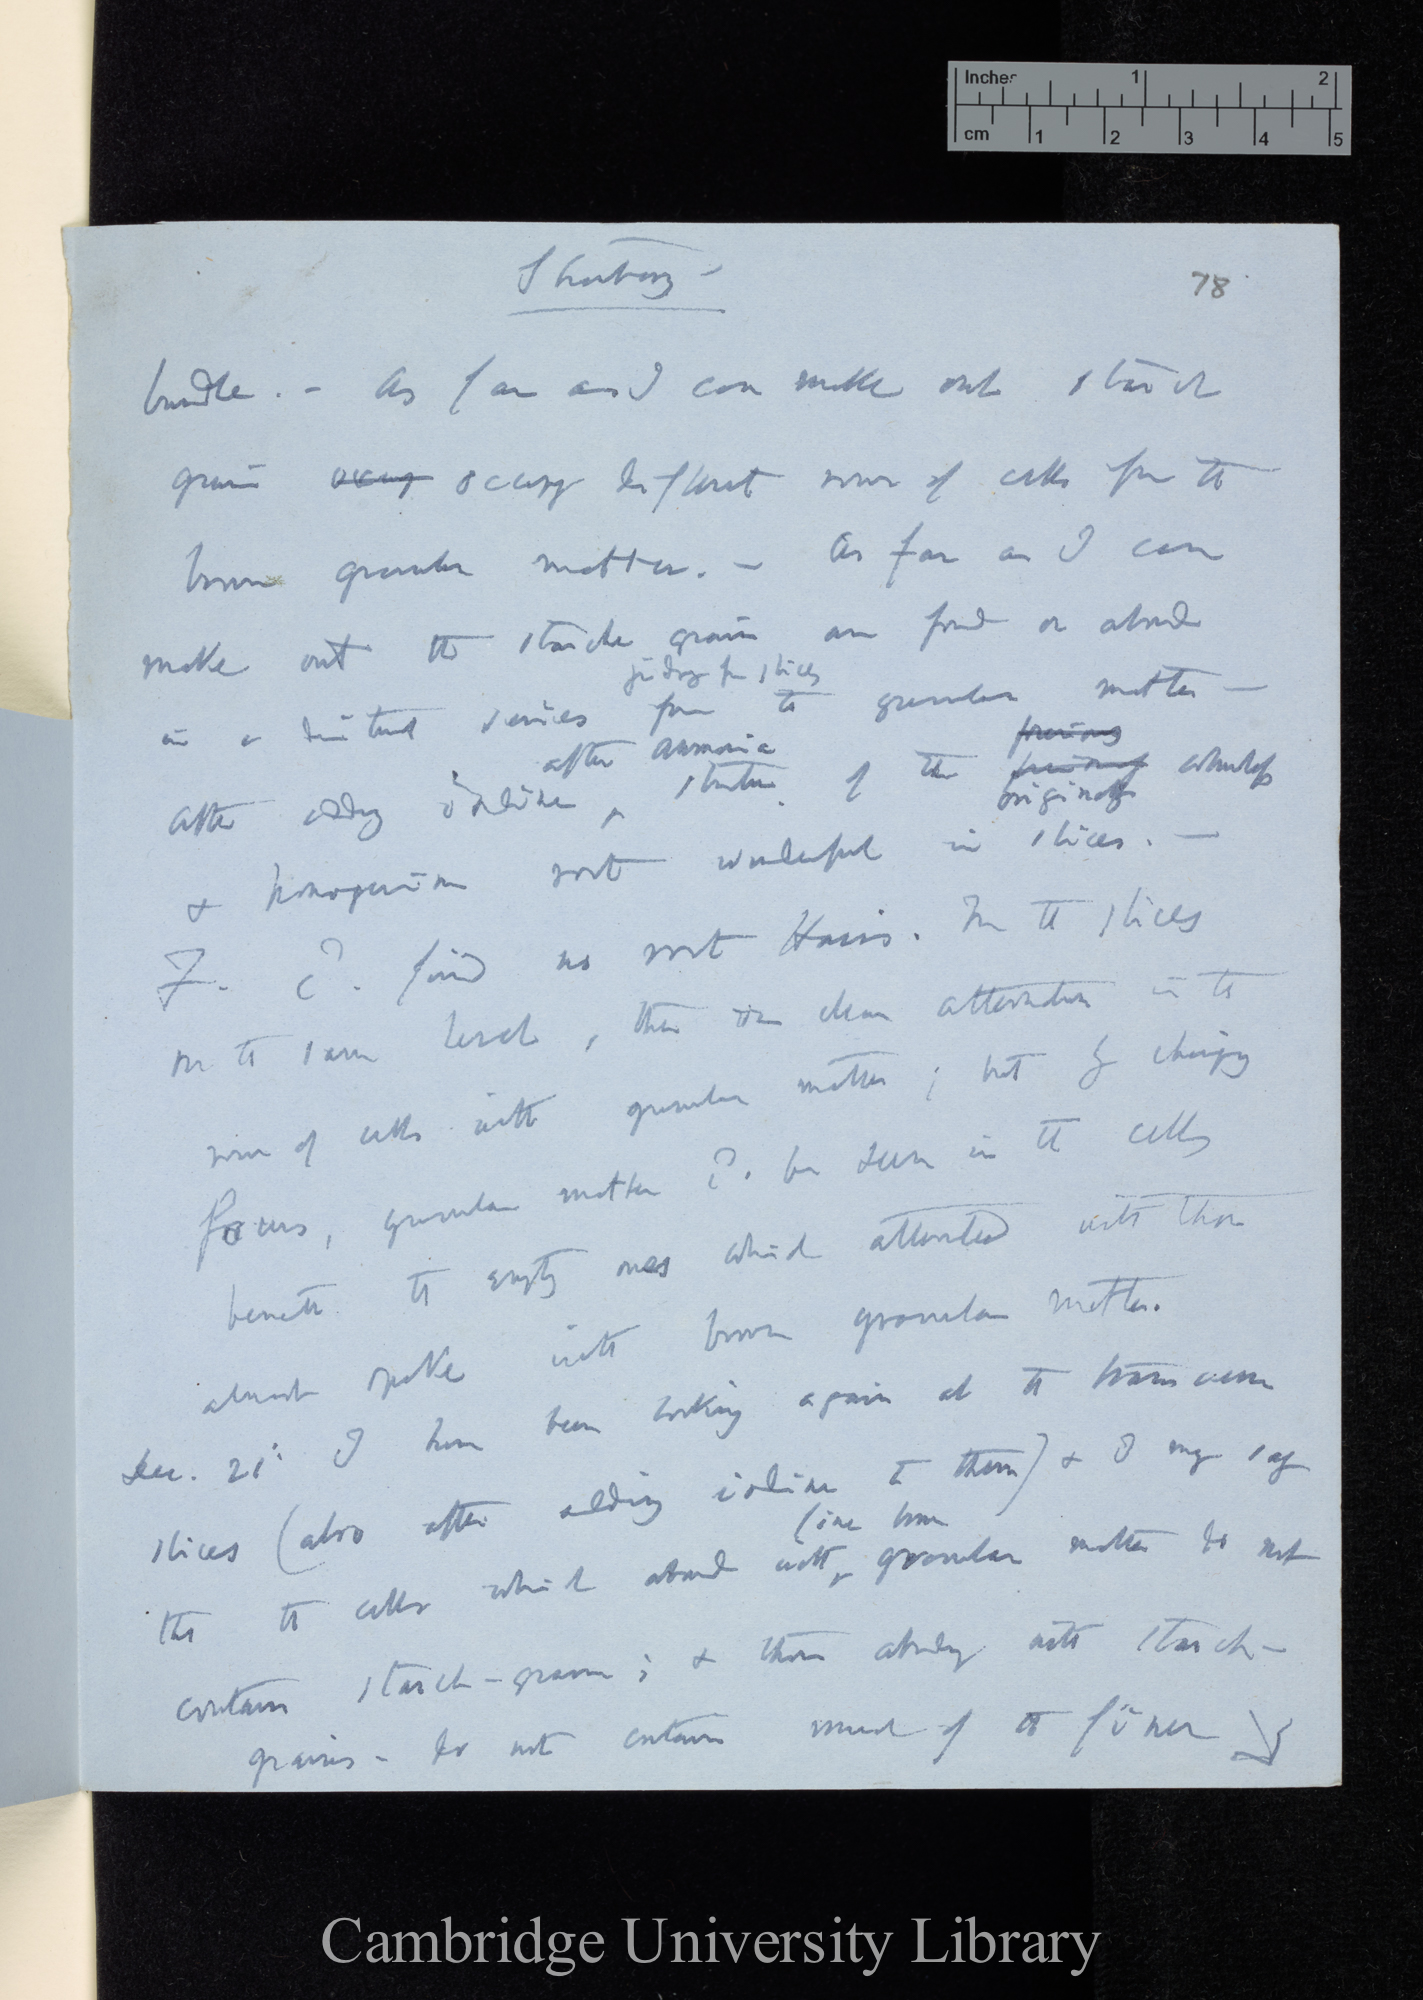 Inches 1 2
cm 1 2 3 4 5
78
bundle. – As far as I can make out starch
grains occupy occupy different rows of cells from the
brown granular matter. – As far as I can
make out the starch grains are found or abound
in a distinct series from the granular matter –
judging from slices
after ammonia
After adding iodine ^ structure of the originally
& homogeneous not wonderful in slices. —
F. cd. find no root Hairs. In the slices
on the same level, there is clear alternation in the
rows of cells with granular matter; but by changing
focus, granular matter cd. be seen in the cells
beneath the empty ones which alternated with those
almost opake with brown granular matter.
Dec. 21st I have been looking again at the transverse
slices (also after adding iodine to them) & I may say
fine brown
that the cells which abound with ^ granular matter do not
contain starch-grains; & those abounding with starch-
grains – do not contain much of the finer
Cambridge University Library